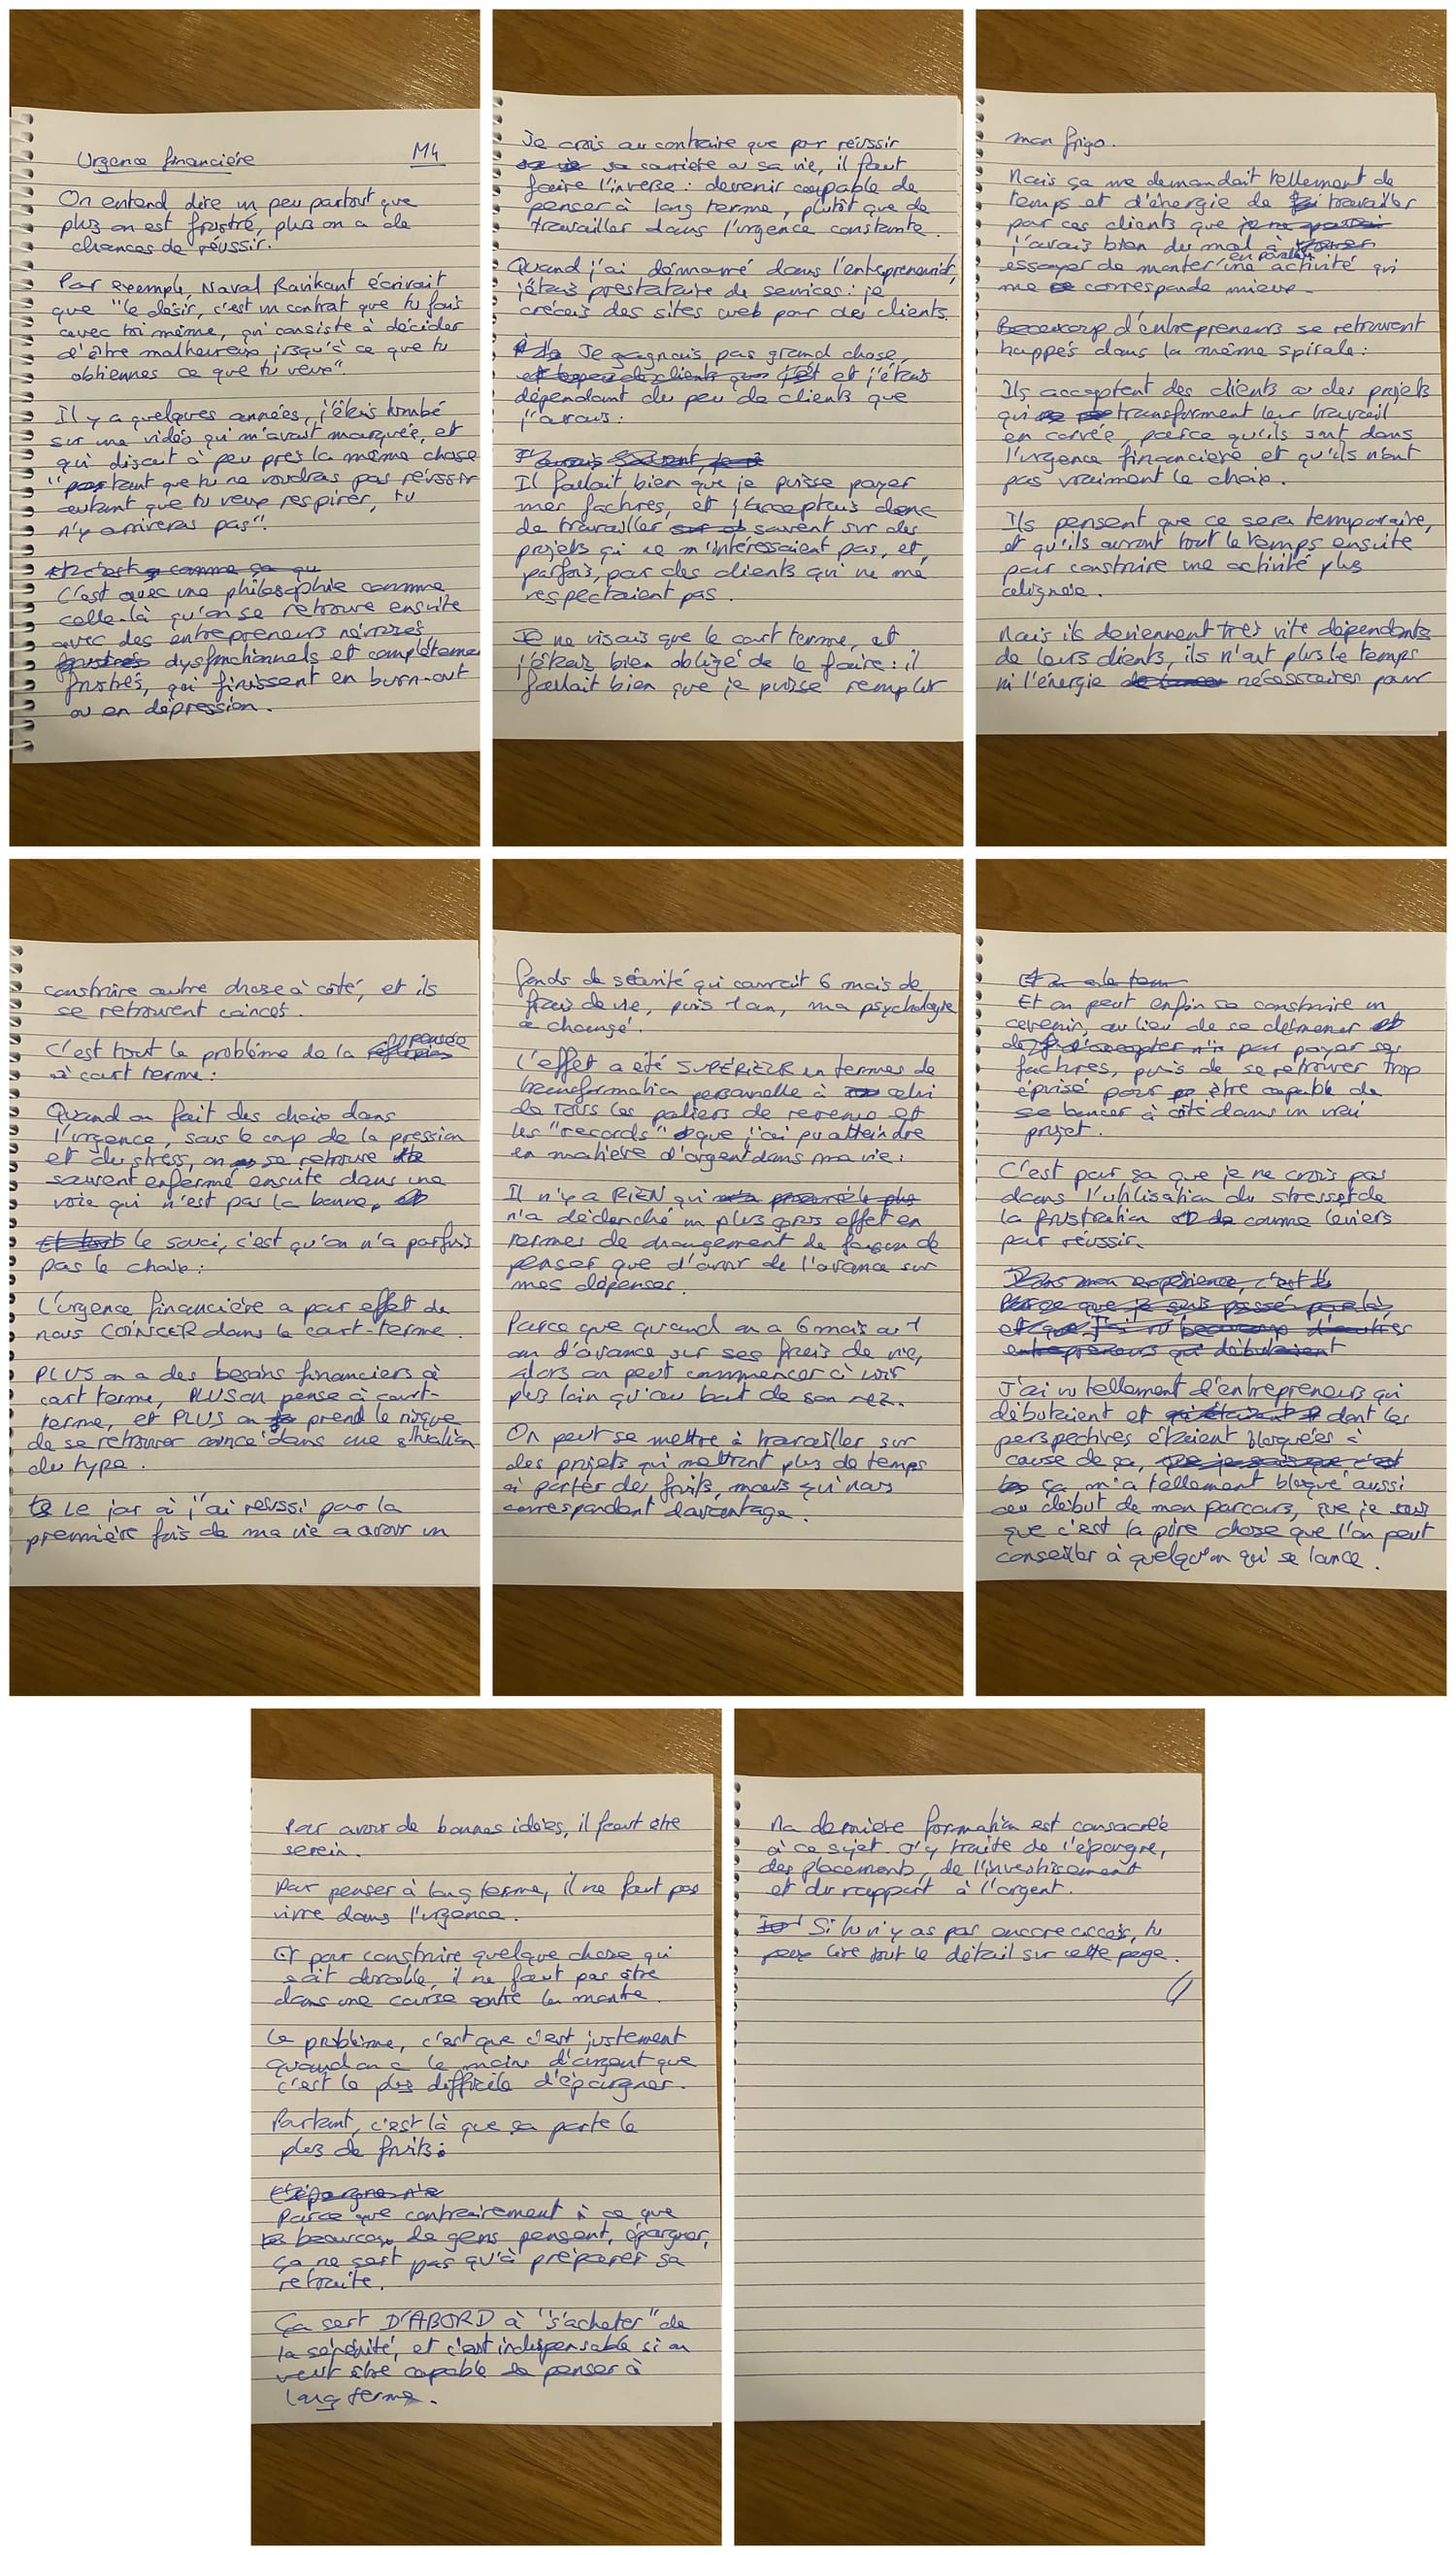 Urgence financière M4
On entend dire un peu partout que
plus on est frustré, plus on a de
chances de réussir.
Par exemple, Naval Ravikant écrivait
que "le désir, c'est un contrat que tu fais
avec toi même, qui consiste à décider
d'être malheureux jusqu'à ce que tu
obtiennes ce que tu veux".
Il y a quelques années, j'étais tombé
sur une vidéo qui m'avait marquée, et
qui disait à peu près la même chose
"tant que tu ne voudras pas réussir
autant que tu veux respirer, tu
n'y arriveras pas".
C'est avec une philosophie comme
celle-là qu'on se retrouve ensuite
avec des entrepreneurs névrosés,
dysfonctionnels et complèteme
frustrés, qui finissent en burn-out
ou en dépression.
Je crois au contraire que pour réussir
sa carrière ou sa vie, il faut
faire l'inverse : devenir capable de
penser à long terme, plutôt que de
travailler dans l'urgence constante.
Quand j'ai démarré dans l'entrepreneuriat,
j'étais prestataire de services : je
créais des sites web pour des clients.
Je gagnais pas grand chose,
et j'étais
dépendant du peu de clients que
j'avais :
Il fallait bien que je puisse payer
mes factures, et j'acceptais donc
de travailler souvent sur des
projets qui ne m'intéressaient pas, et,
parfois, pour des clients qui ne me
respectaient pas.
Je ne visais que le court terme, et
j'étais bien obligé de le faire : il
fallait bien que je puisse remplir
mon frigo.
Mais ça me demandait tellement de
temps et d'énergie de travailler
pour ces clients que
j'avais bien du mal à
essayer de monter en parallèle une activité qui
me corresponde mieux.
Beaucoup d'entrepreneurs se retrouvent
happés dans la même spirale :
Ils acceptent des clients ou des projets
qui transforment leur travail
en corvée, parce qu'ils sont dans
l'urgence financière et qu'ils n'ont
pas vraiment le choix.
Ils pensent que ce sera temporaire,
et qu'ils auront tout le temps ensuite
pour construire une activité plus
alignée.
Mais ils deviennent très vite dépendants
de leurs clients, ils n'ont plus le temps
ni l'énergie nécessaires pour
construire autre chose à côté, et ils
se retrouvent coincés.
C'est tout le problème de la pensée
à court terme :
Quand on fait des choix dans
l'urgence, sous le coup de la pression
et du stress, on se retrouve
souvent enfermé ensuite dans une
voie qui n'est pas la bonne,
le souci, c'est qu'on n'a parfois
pas le choix :
L'urgence financière a pour effet de
nous COINCER dans le court-terme.
PLUS on a des besoins financiers à
court terme, PLUS on pense à court-
terme, et PLUS on prend le risque
de se retrouver coincé dans une situation
du type.
Le jour où j'ai réussi pour la
première fois de ma vie a avoir un
fonds de sécurité qui couvrait 6 mois de
frais de vie, puis 1 an, ma psychologie
a changé.
L'effet a été SUPÉRIEUR en termes de
transformation personnelle à celui
de TOUS les paliers de revenus et
les "records" que j'ai pu atteindre
en matière d'argent dans ma vie :
Il n'y a RIEN qui
n'a déclenché un plus gros effet en
termes de changement de façon de
penser que d'avoir de l'avance sur
mes dépenses.
Parce que quand on a 6 mois ou 1
an d'avance sur ses frais de vie,
alors on peut commencer à voir
plus loin qu'au bout de son nez.
On peut se mettre à travailler sur
des projets qui mettront plus de temps
à porter des fruits, mais qui nous
correspondent davantage.
Et on peut enfin se construire un
avenir, au lieu de se démener
pour payer ses
factures, puis de se retrouver trop
épuisé pour être capable de
se lancer à côté dans un vrai
projet.
C'est pour ça que je ne crois pas
dans l'utilisation du stress et de
la frustration comme leviers
pour réussir.
J'ai vu tellement d'entrepreneurs qui
débutaient et dont les
perspectives étaient bloquées à
cause de ça,
ça m'a tellement bloqué aussi
au début de mon parcours, que je sais
que c'est la pire chose que l'on peut
conseiller à quelqu'un qui se lance.
Pour avoir de bonnes idées, il faut être
serein.
Pour penser à long terme, il ne faut pas
vivre dans l'urgence.
Et pour construire quelque chose qui
soit durable, il ne faut pas être
dans une course contre la montre.
Le problème, c'est que c'est justement
quand on a le moins d'argent que
c'est le plus difficile d'épargner.
Pourtant, c'est là que ça porte le
plus de fruits :
Parce que contrairement à ce que
beaucoup de gens pensent, épargner,
ça ne sert pas qu'à préparer sa
retraite.
Ça sert D'ABORD à "s'acheter" de
la sérénité, et c'est indispensable si on
veut être capable de penser à
long terme.
Ma dernière formation est consacrée
à ce sujet. J'y traite de l'épargne,
des placements, de l'investissement
et du rapport à l'argent.
Si tu n'y as pas encore accès, tu
peux lire tout le détail sur cette page.